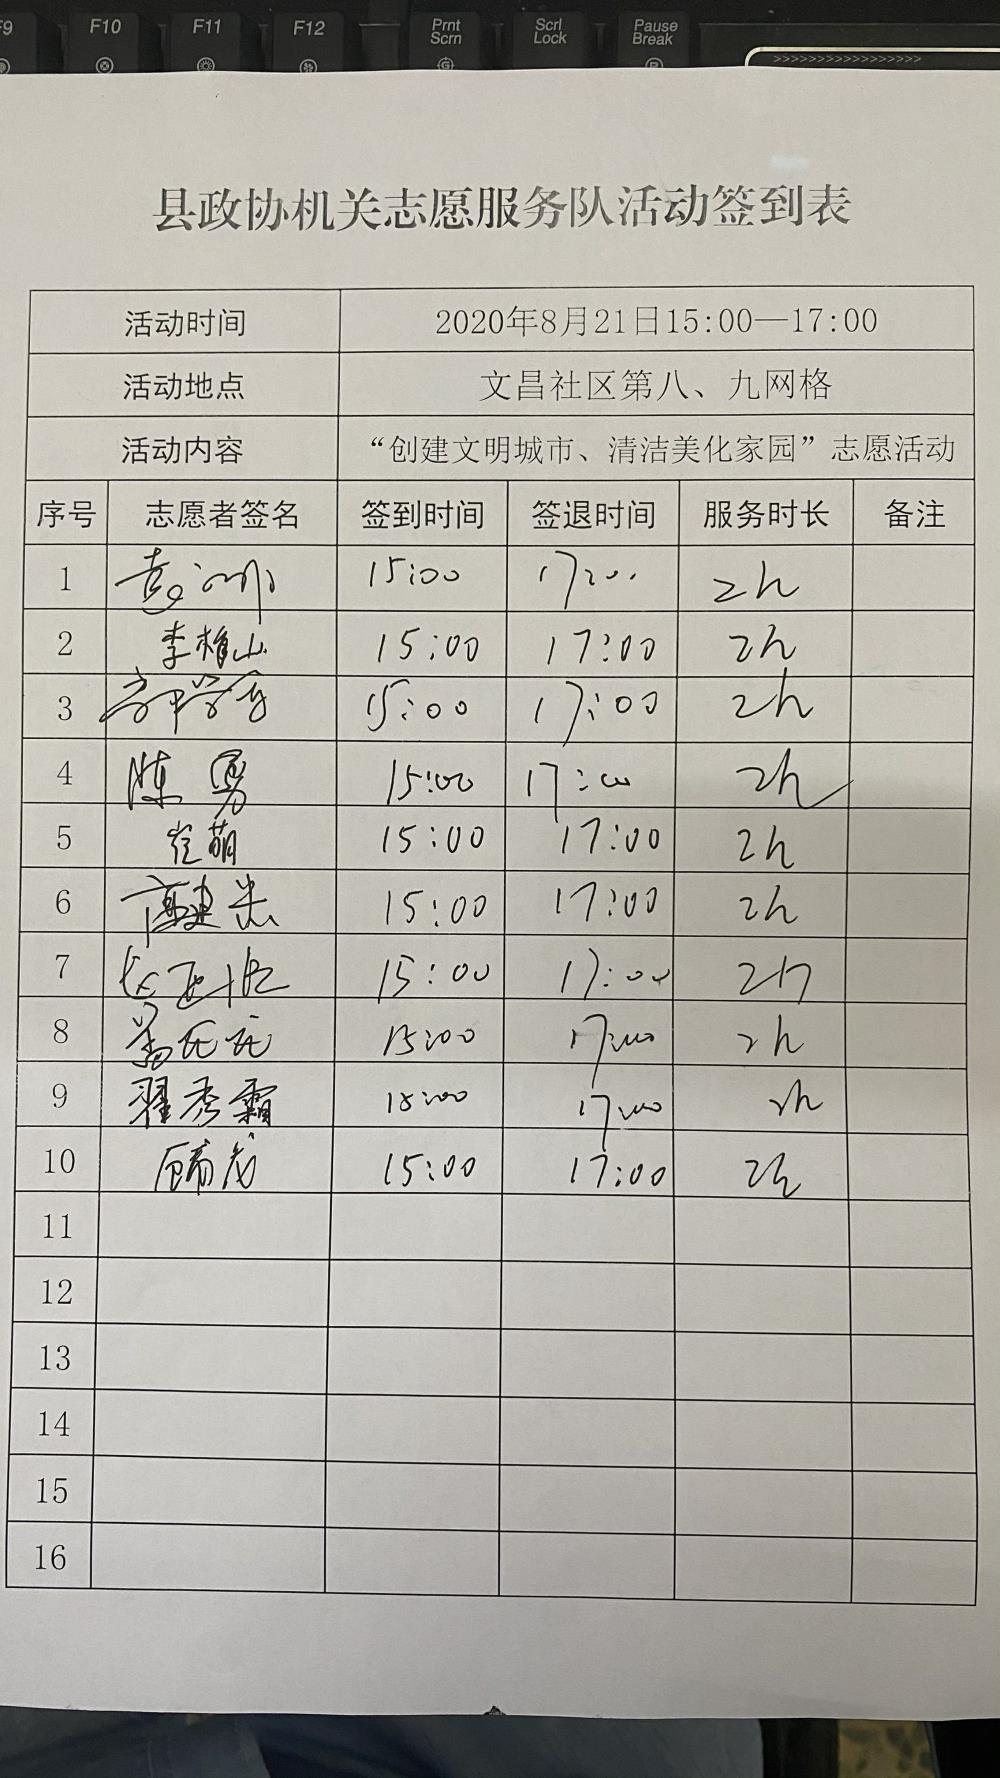 F9 F10 F11 F12 Prnt Scrn Scrl Lock Pause Break
县政协机关志愿服务队活动签到表
活动时间 2020年8月21日15:00—17:00
活动地点 文昌社区第八、九网格
活动内容 “创建文明城市、清洁美化家园”志愿活动
序号 志愿者签名 签到时间 签退时间 服务时长 备注
1 15:00 17:00 2h
2 李梅山 15:00 17:00 2h
3 15:00 17:00 2h
4 陈勇 15:00 17:00 2h
5 崔萌 15:00 17:00 2h
6 高建 15:00 17:00 2h
7 15:00 17:00 2h
8 15:00 17:00 2h
9 翟秀霜 15:00 17:00 2h
10 15:00 17:00 2h
11
12
13
14
15
16